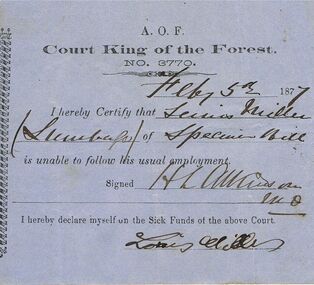 A. O. F.
Court King of the Forest.
NO. 3770.
Feby 5th 1877
I hereby Certify that Louis Miller
(Lumbago) of Specimen Hill
is unable to follow his usual employment.
Signed H L Atkinson
M D
I hereby declare myself on the Sick Funds of the above Court.
Louis Miller